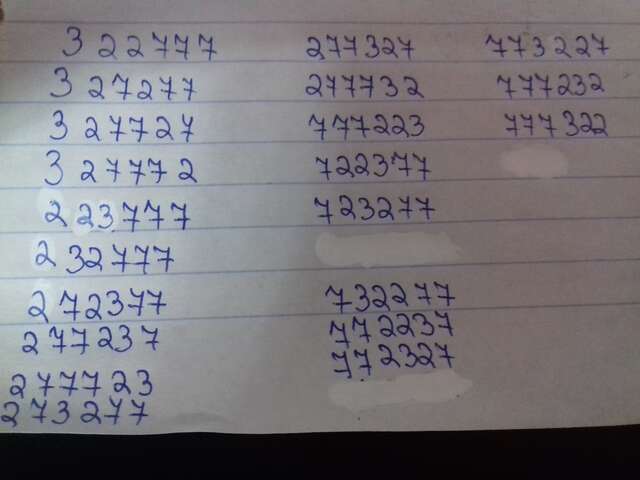 3 2 2 7 7 7 277327 773227
3 2 7 2 7 7 277732 777232
3 2 7 7 2 7 777223 777322
3 2 7 7 7 2 722377
2 23777 723277
2 32777
2 72377 732277
2 77237 772237
277723 772327
273277